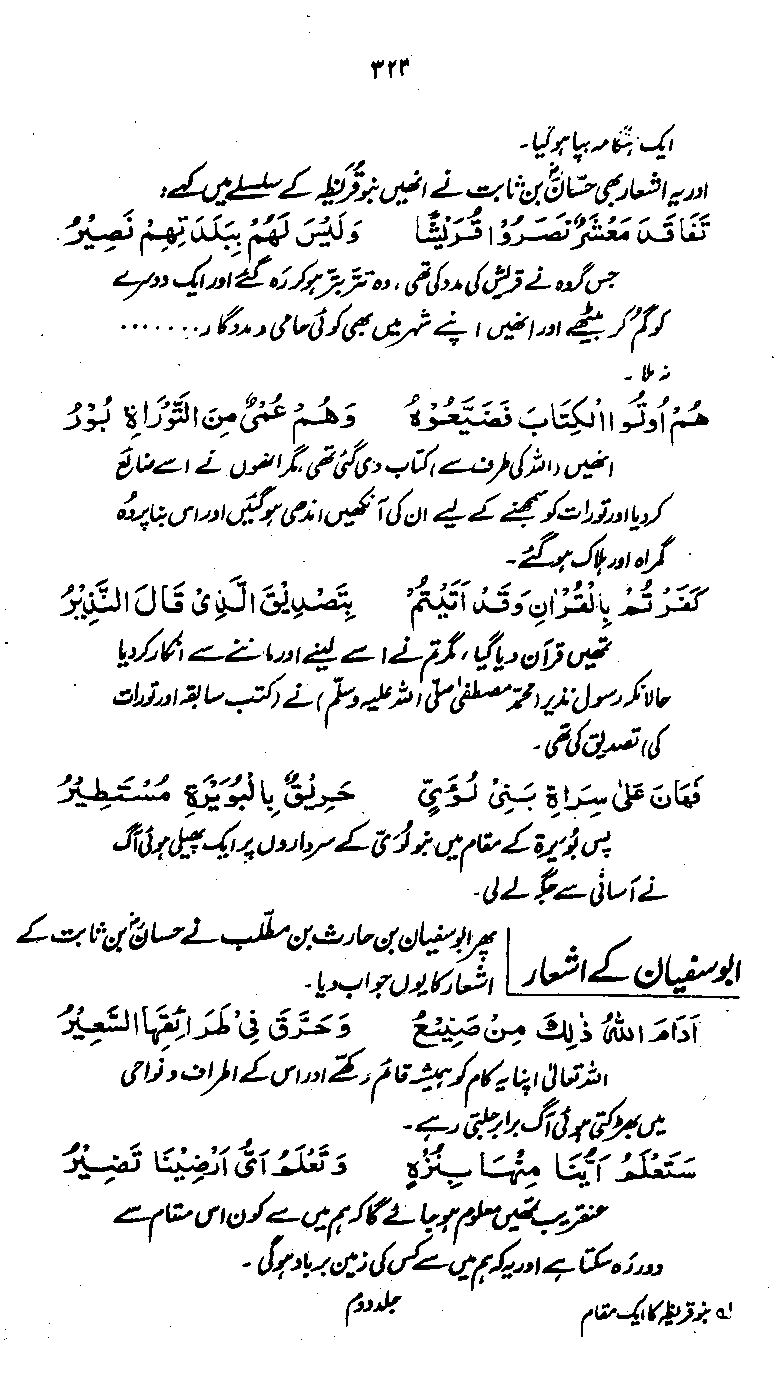 ۳۲۳
ایک ہنگامہ بپا ہو گیا۔
اور یہ اشعار بھی حسّانؓ بن ثابت نے انھیں بنو قُریظہ کے سلسلے میں کہے:
تَفَاقَدَ مَعْشَرٌ نَصَرُوْا قُرَيْشًا وَلَيْسَ لَهُمْ بِبَلْدَتِهِمْ نَصِيْرُ
جس گروہ نے قریش کی مدد کی تھی، وہ تتر بتر ہو کر رہ گئے اور ایک دوسرے
کو گُم کر بیٹھے اور انھیں اپنے شہر میں بھی کوئی حامی و مددگار.......
نہ ملا۔
هُمْ اُوتُوا الْكِتَابَ فَضَيَّعُوْهُ وَهُمْ عُمْيٌ مِنَ التَّوْرَاةِ بُوْرُ
انھیں (اللہ کی طرف سے) کتاب دی گئی تھی، مگر انھوں نے اسے ضائع
کر دیا اور تورات کو سمجھنے کے لیے ان کی آنکھیں اندھی ہو گئیں اور اس بنا پر وہ
گمراہ اور ہلاک ہو گئے۔
كَفَرْتُمْ بِالْقُرْاٰنِ وَقَدْ اَتَيْتُمْ بِتَصْدِيْقِ الَّذِىْ قَالَ النَّذِيْرُ
تمھیں قرآن دیا گیا، مگر تم نے اسے لینے اور ماننے سے انکار کر دیا
حالانکہ رسول نذیر (محمّد مصطفیٰ صلّی اللہ علیہ وسلم) نے (کتب سابقہ اور تورات
کی) تصدیق کی تھی۔
فَهَانَ عَلىٰ سِرَاةِ بَنِىْ لُؤَيٍّ حَرِيْقٌ بِالْبُوَيْرَةِ مُسْتَطِيْرُ
پس بُویرۃ کے مقام میں بنو لُوئ کے سرداروں پر ایک پھیلی ہوئی آگ
نے آسانی سے جگہ لے لی۔
ابو سفیان کے اشعار
پھر ابوسفیان بن حارث بن مطّلب نے حسانؓ بن ثابت کے
اشعار کا یوں جواب دیا۔
اَدَامَ اللهُ ذٰلِكَ مِنْ صَنِيْعٍ وَحَرَّقَ فِىْ طَرَائِقِهَا السَّعِيْرُ
اللہ تعالیٰ اپنا یہ کام کو ہمیشہ قائم رکھے اور اس کے اطراف و نواحی
میں بھڑکتی ہوئی آگ برابر جلتی رہے۔
سَتَعْلَمُ اَيُّنَا مِنْهَا بِنُزْهٍ وَتَعْلَمُ اَىُّ اَرْضِيْنَا تَضِيْرُ
عنقریب تمھیں معلوم ہو جائے گا کہ ہم میں سے کون اس مقام سے
دور رہ سکتا ہے اور یہ کہ ہم میں سے کس کی زمین برباد ہوگی۔
لہ بنو قریظہ کا ایک مقام جلد دوم